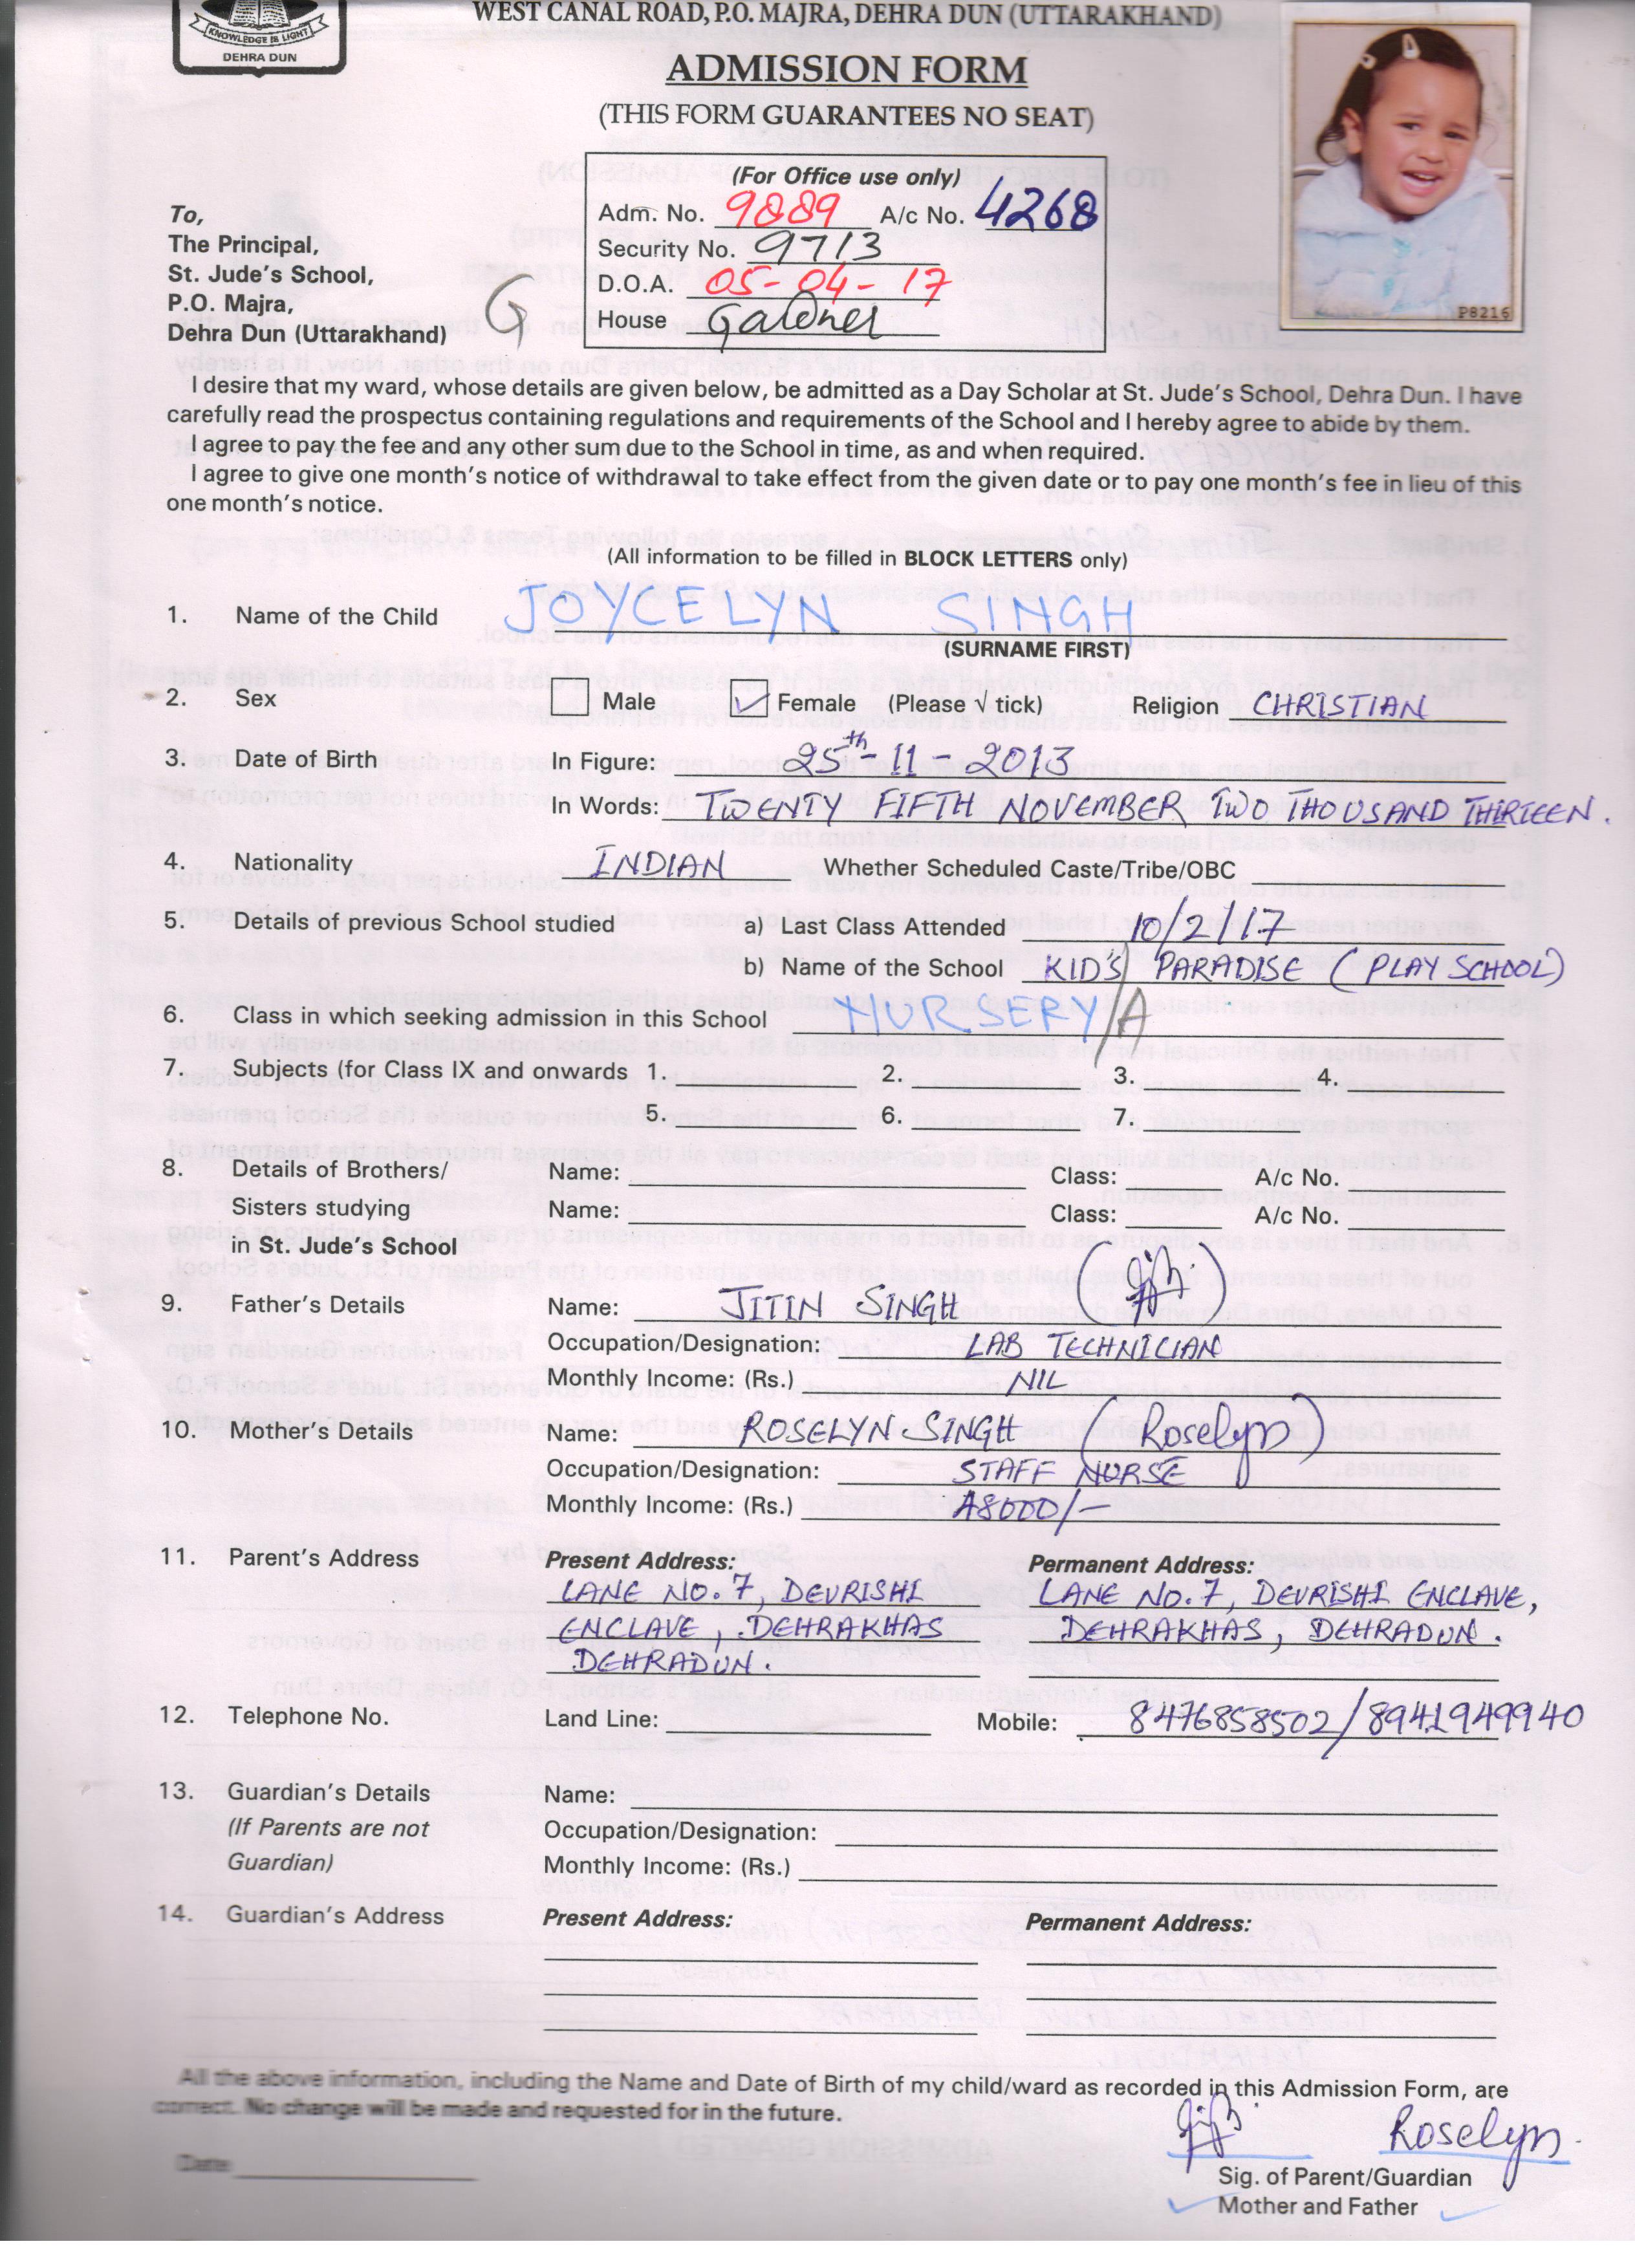 WEST CANAL ROAD, P.O. MAJRA, DEHRA DUN (UTTARAKHAND)
KNOWLEDGE IS LIGHT
DEHRA DUN
ADMISSION FORM
(THIS FORM GUARANTEES NO SEAT)
(For Office use only)
Adm. No. 9889 A/c No. 4268
Security No. 9713
D.O.A. 05-04-17
House Gardner
P8216
To,
The Principal,
St. Jude's School,
P.O. Majra,
Dehra Dun (Uttarakhand)
I desire that my ward, whose details are given below, be admitted as a Day Scholar at St. Jude's School, Dehra Dun. I have
carefully read the prospectus containing regulations and requirements of the School and I hereby agree to abide by them.
I agree to pay the fee and any other sum due to the School in time, as and when required.
I agree to give one month's notice of withdrawal to take effect from the given date or to pay one month's fee in lieu of this
one month's notice.
(All information to be filled in BLOCK LETTERS only)
1. Name of the Child JOYCELYN SINGH
(SURNAME FIRST)
2. Sex Male Female (Please √ tick) Religion CHRISTIAN
3. Date of Birth In Figure: 25th-11-2013
In Words: TWENTY FIFTH NOVEMBER TWO THOUSAND THIRTEEN.
4. Nationality INDIAN Whether Scheduled Caste/Tribe/OBC
5. Details of previous School studied a) Last Class Attended 10/2/17
b) Name of the School KID'S PARADISE (PLAY SCHOOL)
6. Class in which seeking admission in this School NURSERY/A
7. Subjects (for Class IX and onwards 1. 2. 3. 4.
5. 6. 7.
8. Details of Brothers/ Name: Class: A/c No.
Sisters studying Name: Class: A/c No.
in St. Jude's School
9. Father's Details Name: JITIN SINGH
Occupation/Designation: LAB TECHNICIAN
Monthly Income: (Rs.) NIL
10. Mother's Details Name: ROSELYN SINGH (Roselyn)
Occupation/Designation: STAFF NURSE
Monthly Income: (Rs.) 18000/-
11. Parent's Address Present Address: Permanent Address:
LANE NO.7, DEVRISHI LANE NO.7, DEVRISHI ENCLAVE,
ENCLAVE, DEHRAKHAS DEHRAKHAS, DEHRADUN.
DEHRADUN.
12. Telephone No. Land Line: Mobile: 8476858502/8941949940
13. Guardian's Details Name:
(If Parents are not Occupation/Designation:
Guardian) Monthly Income: (Rs.)
14. Guardian's Address Present Address: Permanent Address:
All the above information, including the Name and Date of Birth of my child/ward as recorded in this Admission Form, are
correct. No change will be made and requested for in the future.
Roselyn.
Date
Sig. of Parent/Guardian
Mother and Father